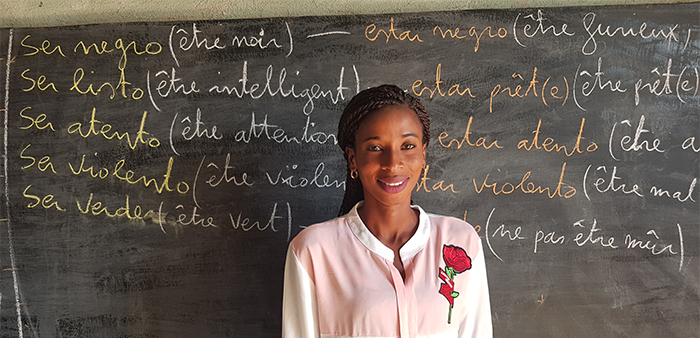 Ser negro (être noir) — estar negro (être furieux,
Ser listo (être intelligent) estar prêt(e) (être prêt(e)
Ser atento (être attention estar atento (être a
Ser violento (être violen estar violento (être mal
Ser verde (être vert) — (ne pas être mûr)